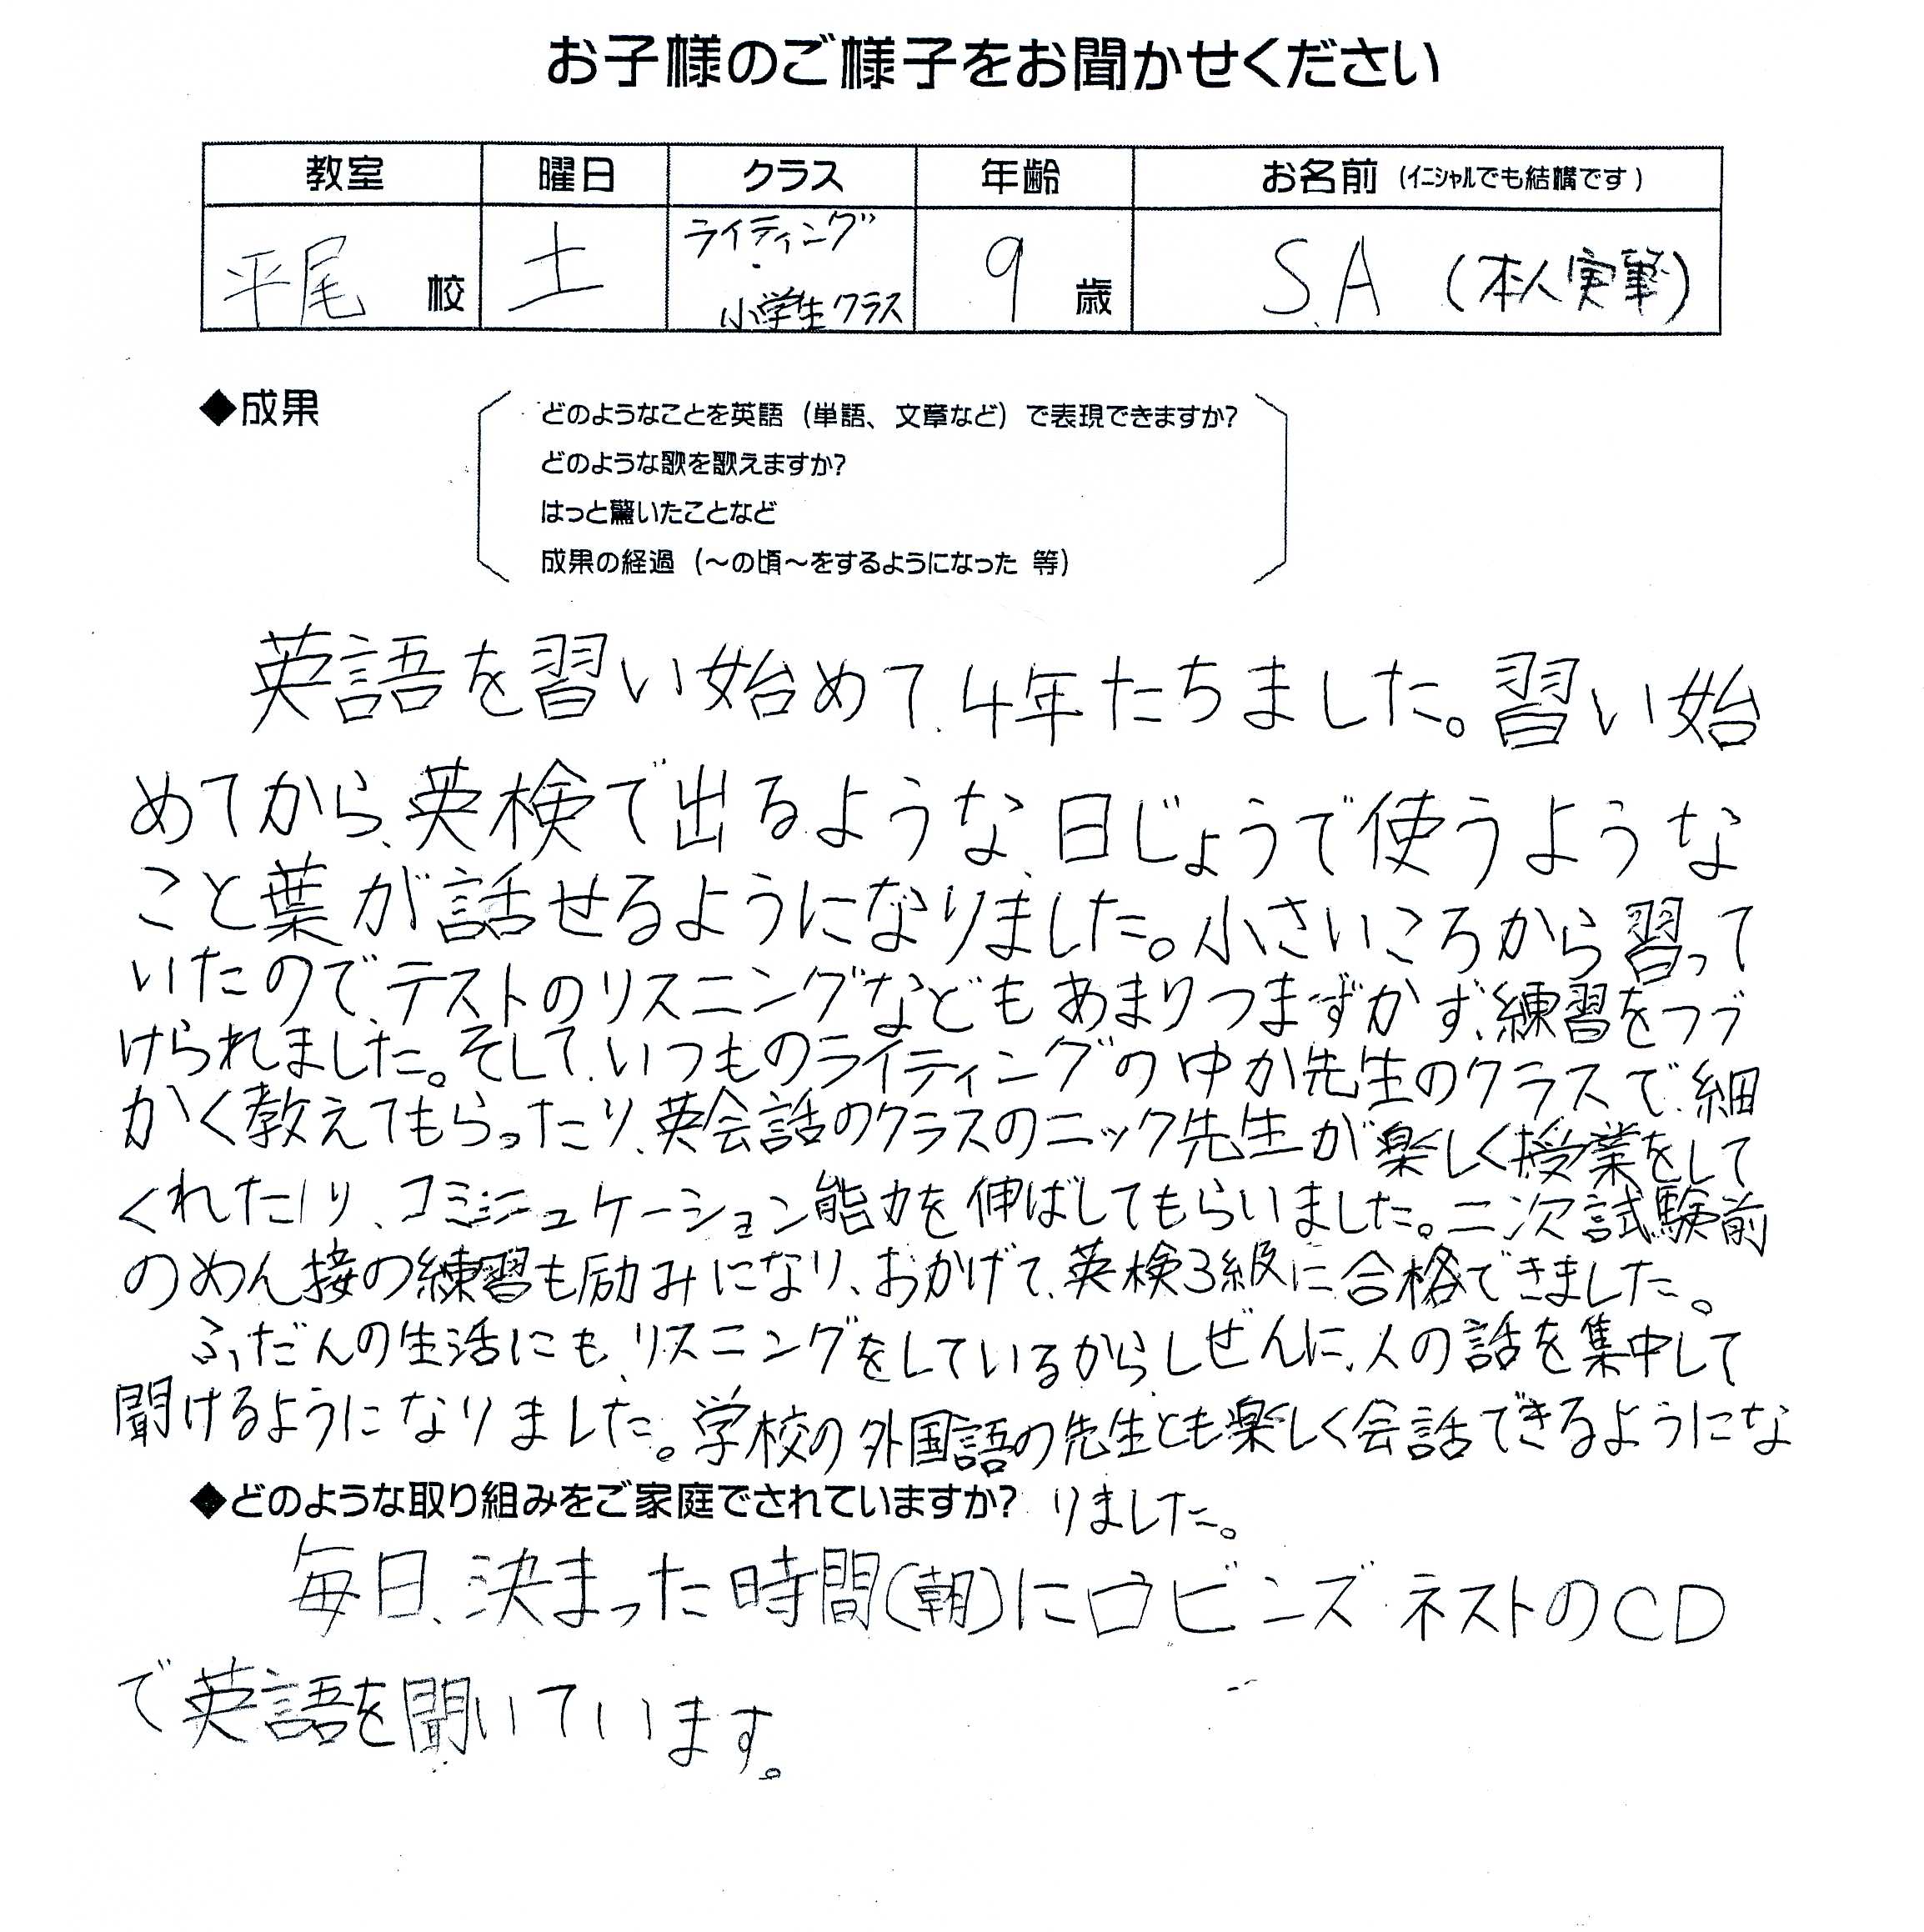 お子様のご様子をお聞かせください
教室 曜日 クラス 年齢 お名前（イニシャルでも結構です）
平尾 校 土 ライティング・小学生クラス 9 歳 S.A （本人実筆）
◆成果
どのようなことを英語（単語、文章など）で表現できますか?
どのような歌を歌えますか?
はっと驚いたことなど
成果の経過（〜の頃〜をするようになった 等）
英語を習い始めて、4年たちました。習い始
めてから、英検で出るような、日じょうで使うような
こと葉が話せるようになりました。小さいころから習って
いたので、テストのリスニングなどもあまりつまずかず、練習をつづ
けられました。そして、いつものライティングのゆか先生のクラスで、細
かく教えてもらったり、英会話のクラスのニック先生が楽しく授業をして
くれたり、コミニュケーション能力を伸ばしてもらいました。二次試験前
のめん接の練習も励みになり、おかげで、英検3級に合格できました。
ふだんの生活にも、リスニングをしているから、しぜんに、人の話を集中して
聞けるようになりました。学校の外国語の先生とも楽しく会話できるようにな
りました。
◆どのような取り組みをご家庭でされていますか?
毎日、決まった時間(朝)にロビンズ ネストのCD
で英語を聞いています。